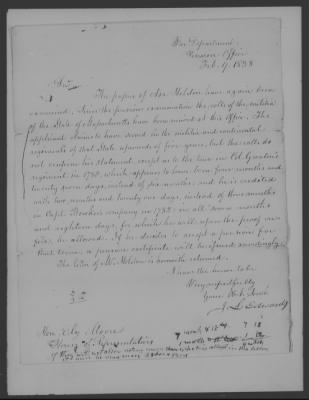 War Department
Pension Office
Feb. 9, 1838
Sir,
The papers of Asa Holden have again been
examined. Since the previous examination the rolls of the militia
of the State of Massachusetts have been received at this Office. The
applicant claims to have served in the militia and continental
regiments of that State upwards of five years, but the rolls do
not confirm his statement, except as to the tour in Col.
regiment in 1780, which appears to have been four months and
twenty seven days, instead of six months, and he is credited
with two months and twenty one days, instead of three months
in Capt. company in 1782 in all seven months
and eighteen days, for which he will upon the proof on
file, be allowed. If he decides to accept a pension for
that term, a pension certificate will be issued accordingly.
The letter of Mr. Holden is herewith returned.
I have the honor to be
Very respectfully
Your Obt. Servt.
J. L. Edwards
Hon. Ely Moore
House of Representatives